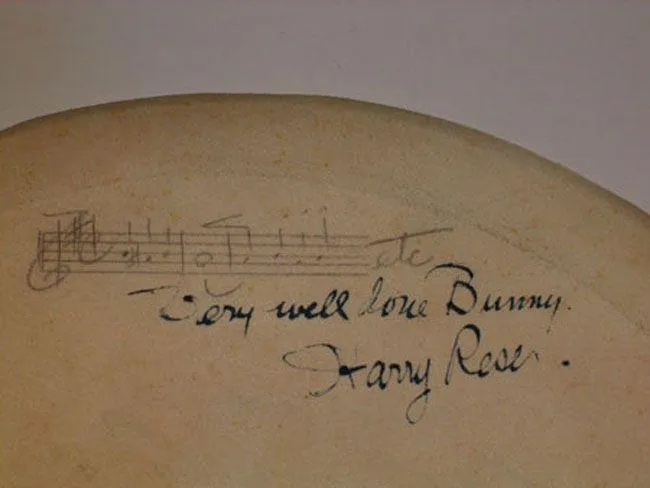 etc
Very well done Bunny.
Harry Reser.